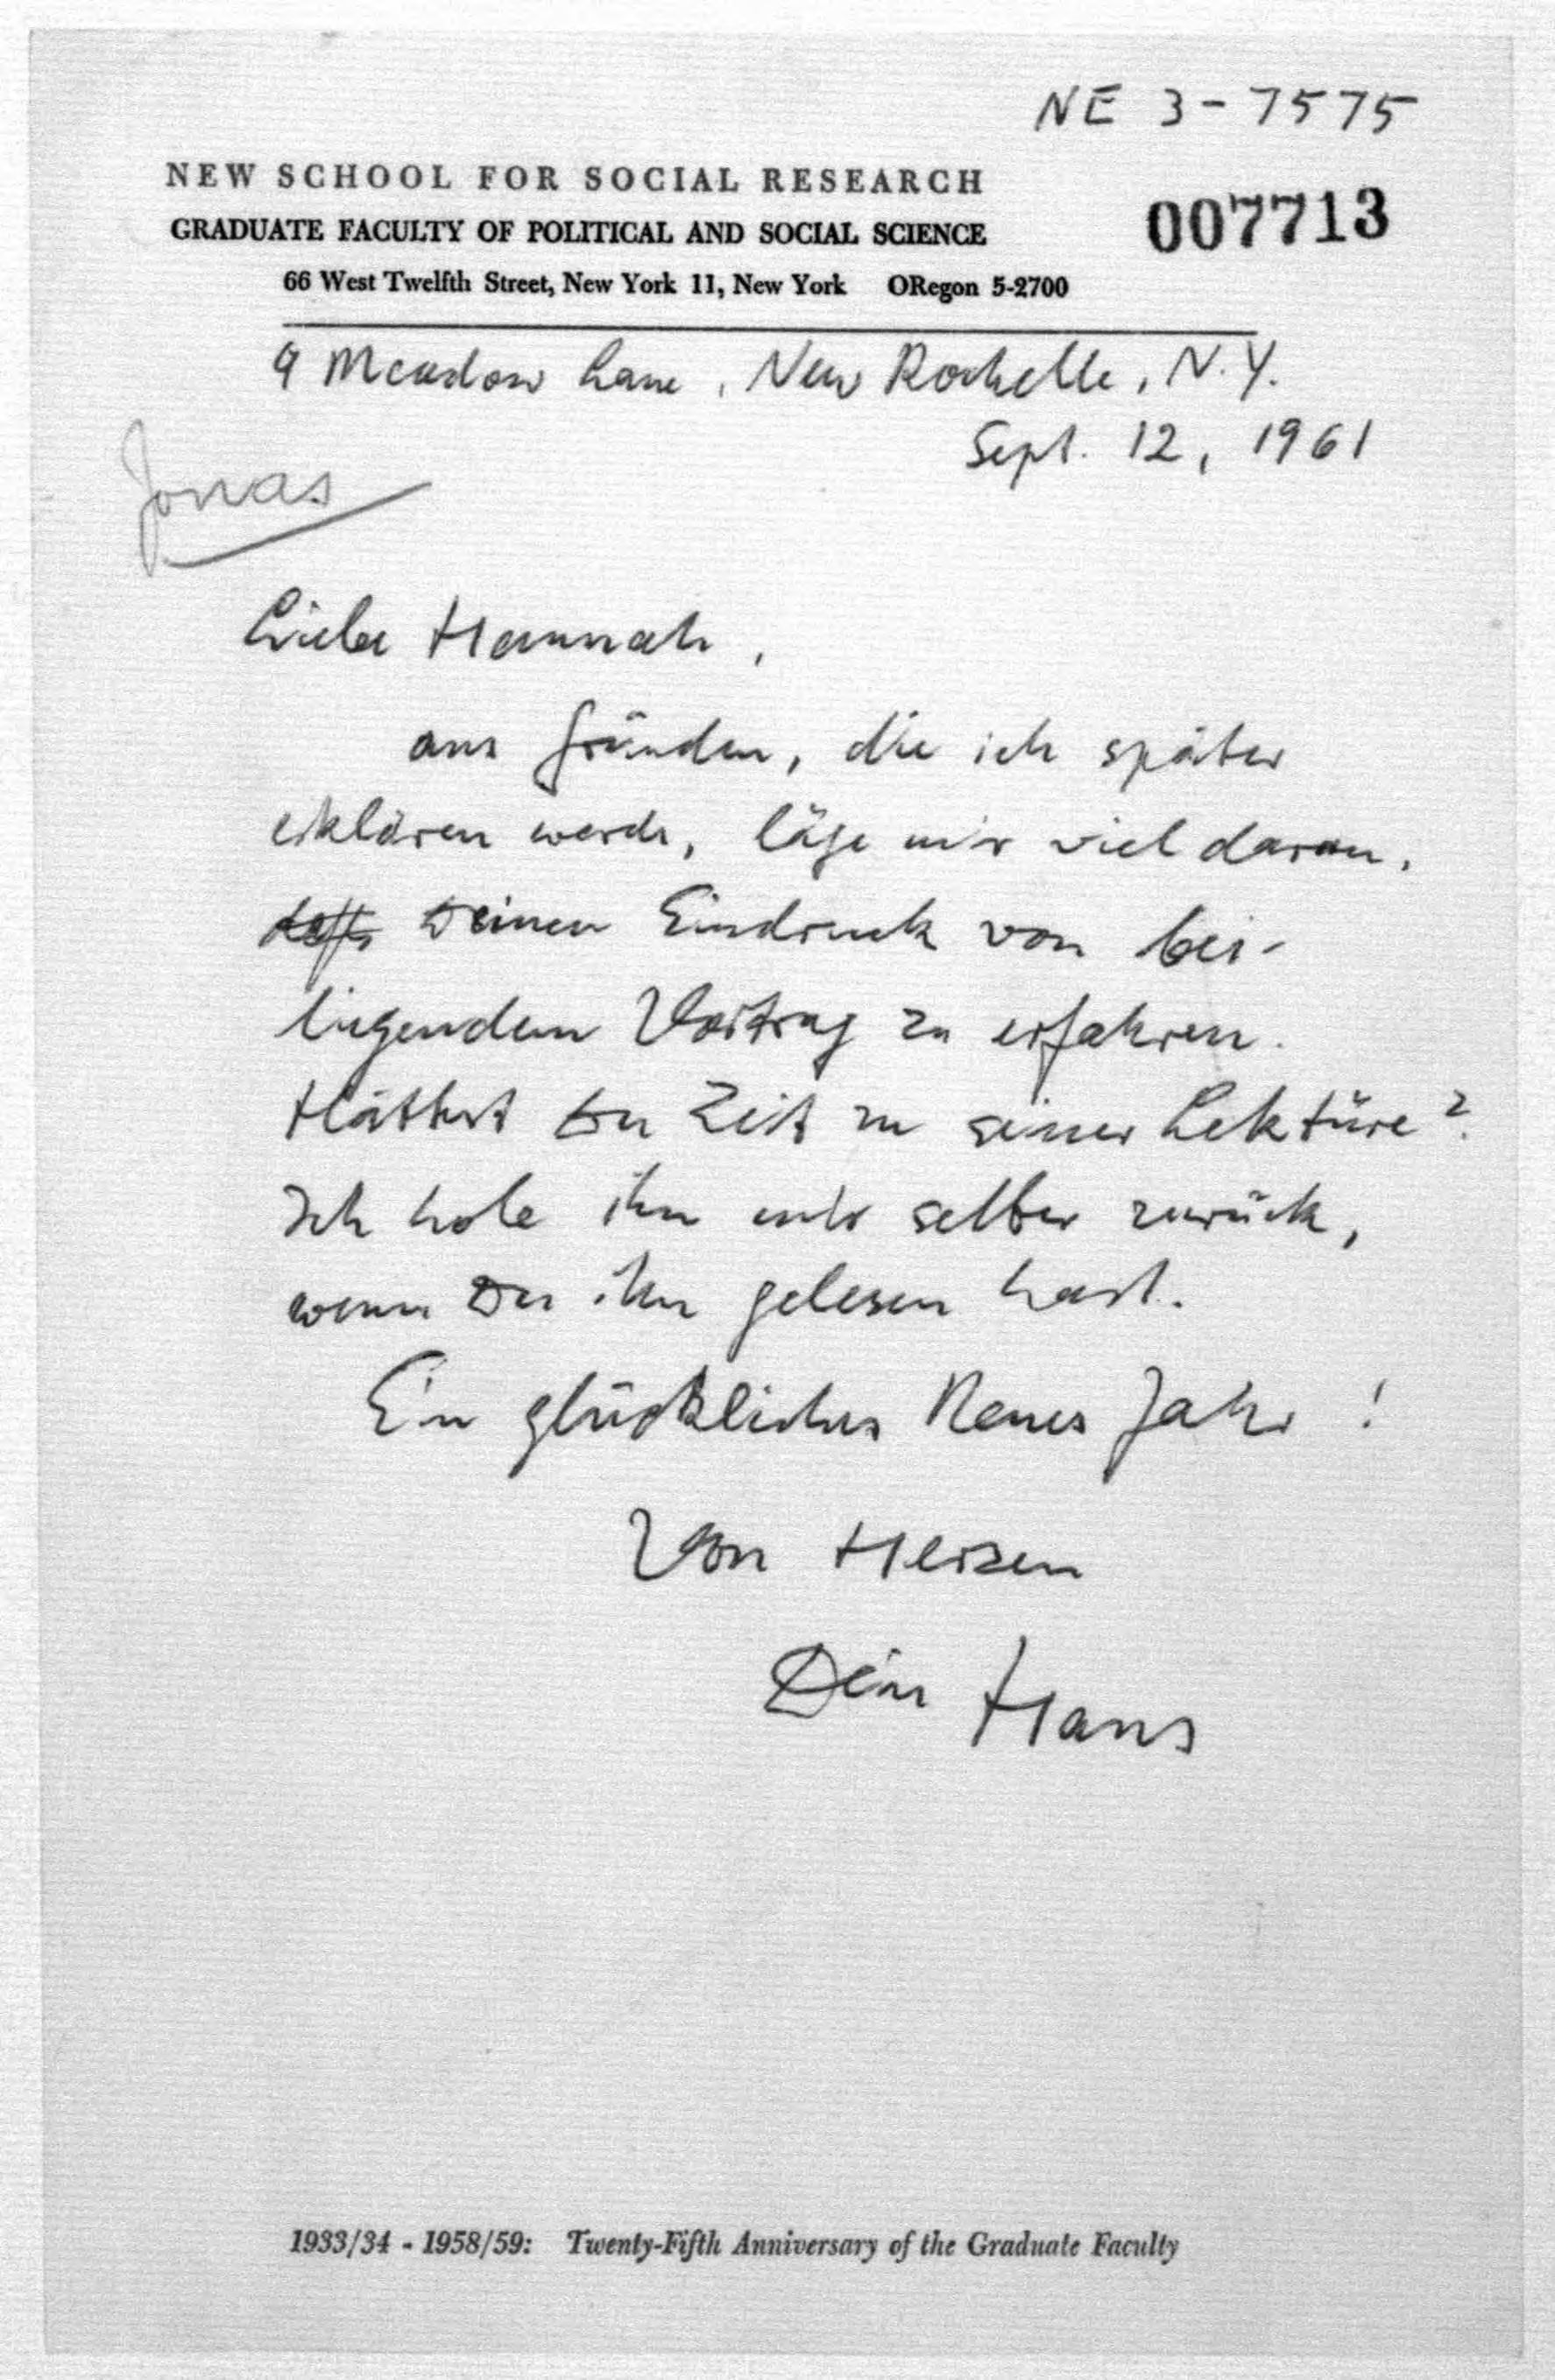 NE 3-7575
NEW SCHOOL FOR SOCIAL RESEARCH
007713
GRADUATE FACULTY OF POLITICAL AND SOCIAL SCIENCE
66 West Twelfth Street, New York 11, New York ORegon 5-2700
9 Meadow Lane, New Rochelle, N.Y.
Sept. 12, 1961
Jonas
Liebe Hannah,
aus Gründen, die ich später
erklären werde, läge mir viel daran,
Deinen Eindruck von bei-
liegendem Vortrag zu erfahren.
Hättest Du Zeit zu seiner Lektüre?
Ich hole ihn mir selber zurück,
wenn Du ihn gelesen hast.
Ein glückliches Neues Jahr!
Von Herzen
Dein Hans
1933/34 - 1958/59: Twenty-Fifth Anniversary of the Graduate Faculty